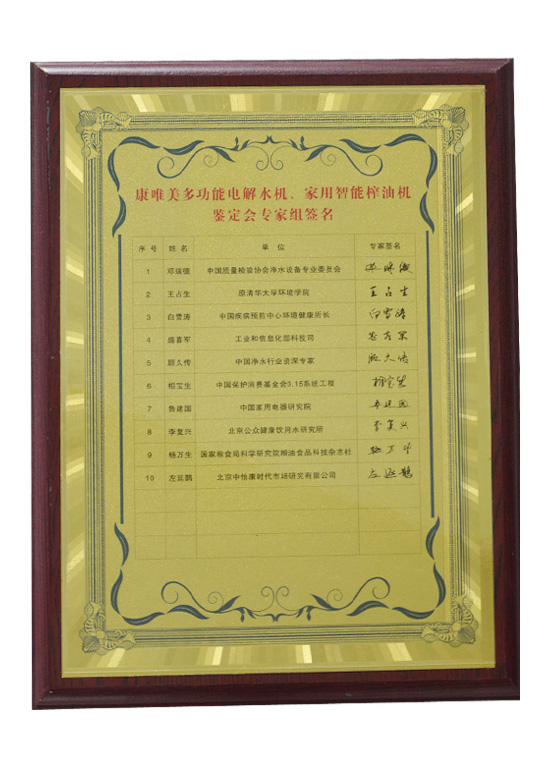 康唯美多功能电解水机、家用智能榨油机
鉴定会专家组签名
序 号 姓 名 单 位 专家签名
1 邓瑞德 中国质量检验协会净水设备专业委员会
2 王占生 原清华大学环境学院 王占生
3 白雪涛 中国疾病预防中心环境健康所长 白雪涛
4 盛喜军 工业和信息化部科技司
5 顾久传 中国净水行业资深专家
6 相宝生 中国保护消费基金会3.15系统工程 相宝生
7 鲁建国 中国家用电器研究院 鲁建国
8 李复兴 北京公众健康饮用水研究所 李复兴
9 杨万生 国家粮食局科学研究院粮油食品科技杂志社
10 左延鹊 北京中怡康时代市场研究有限公司 左延鹊